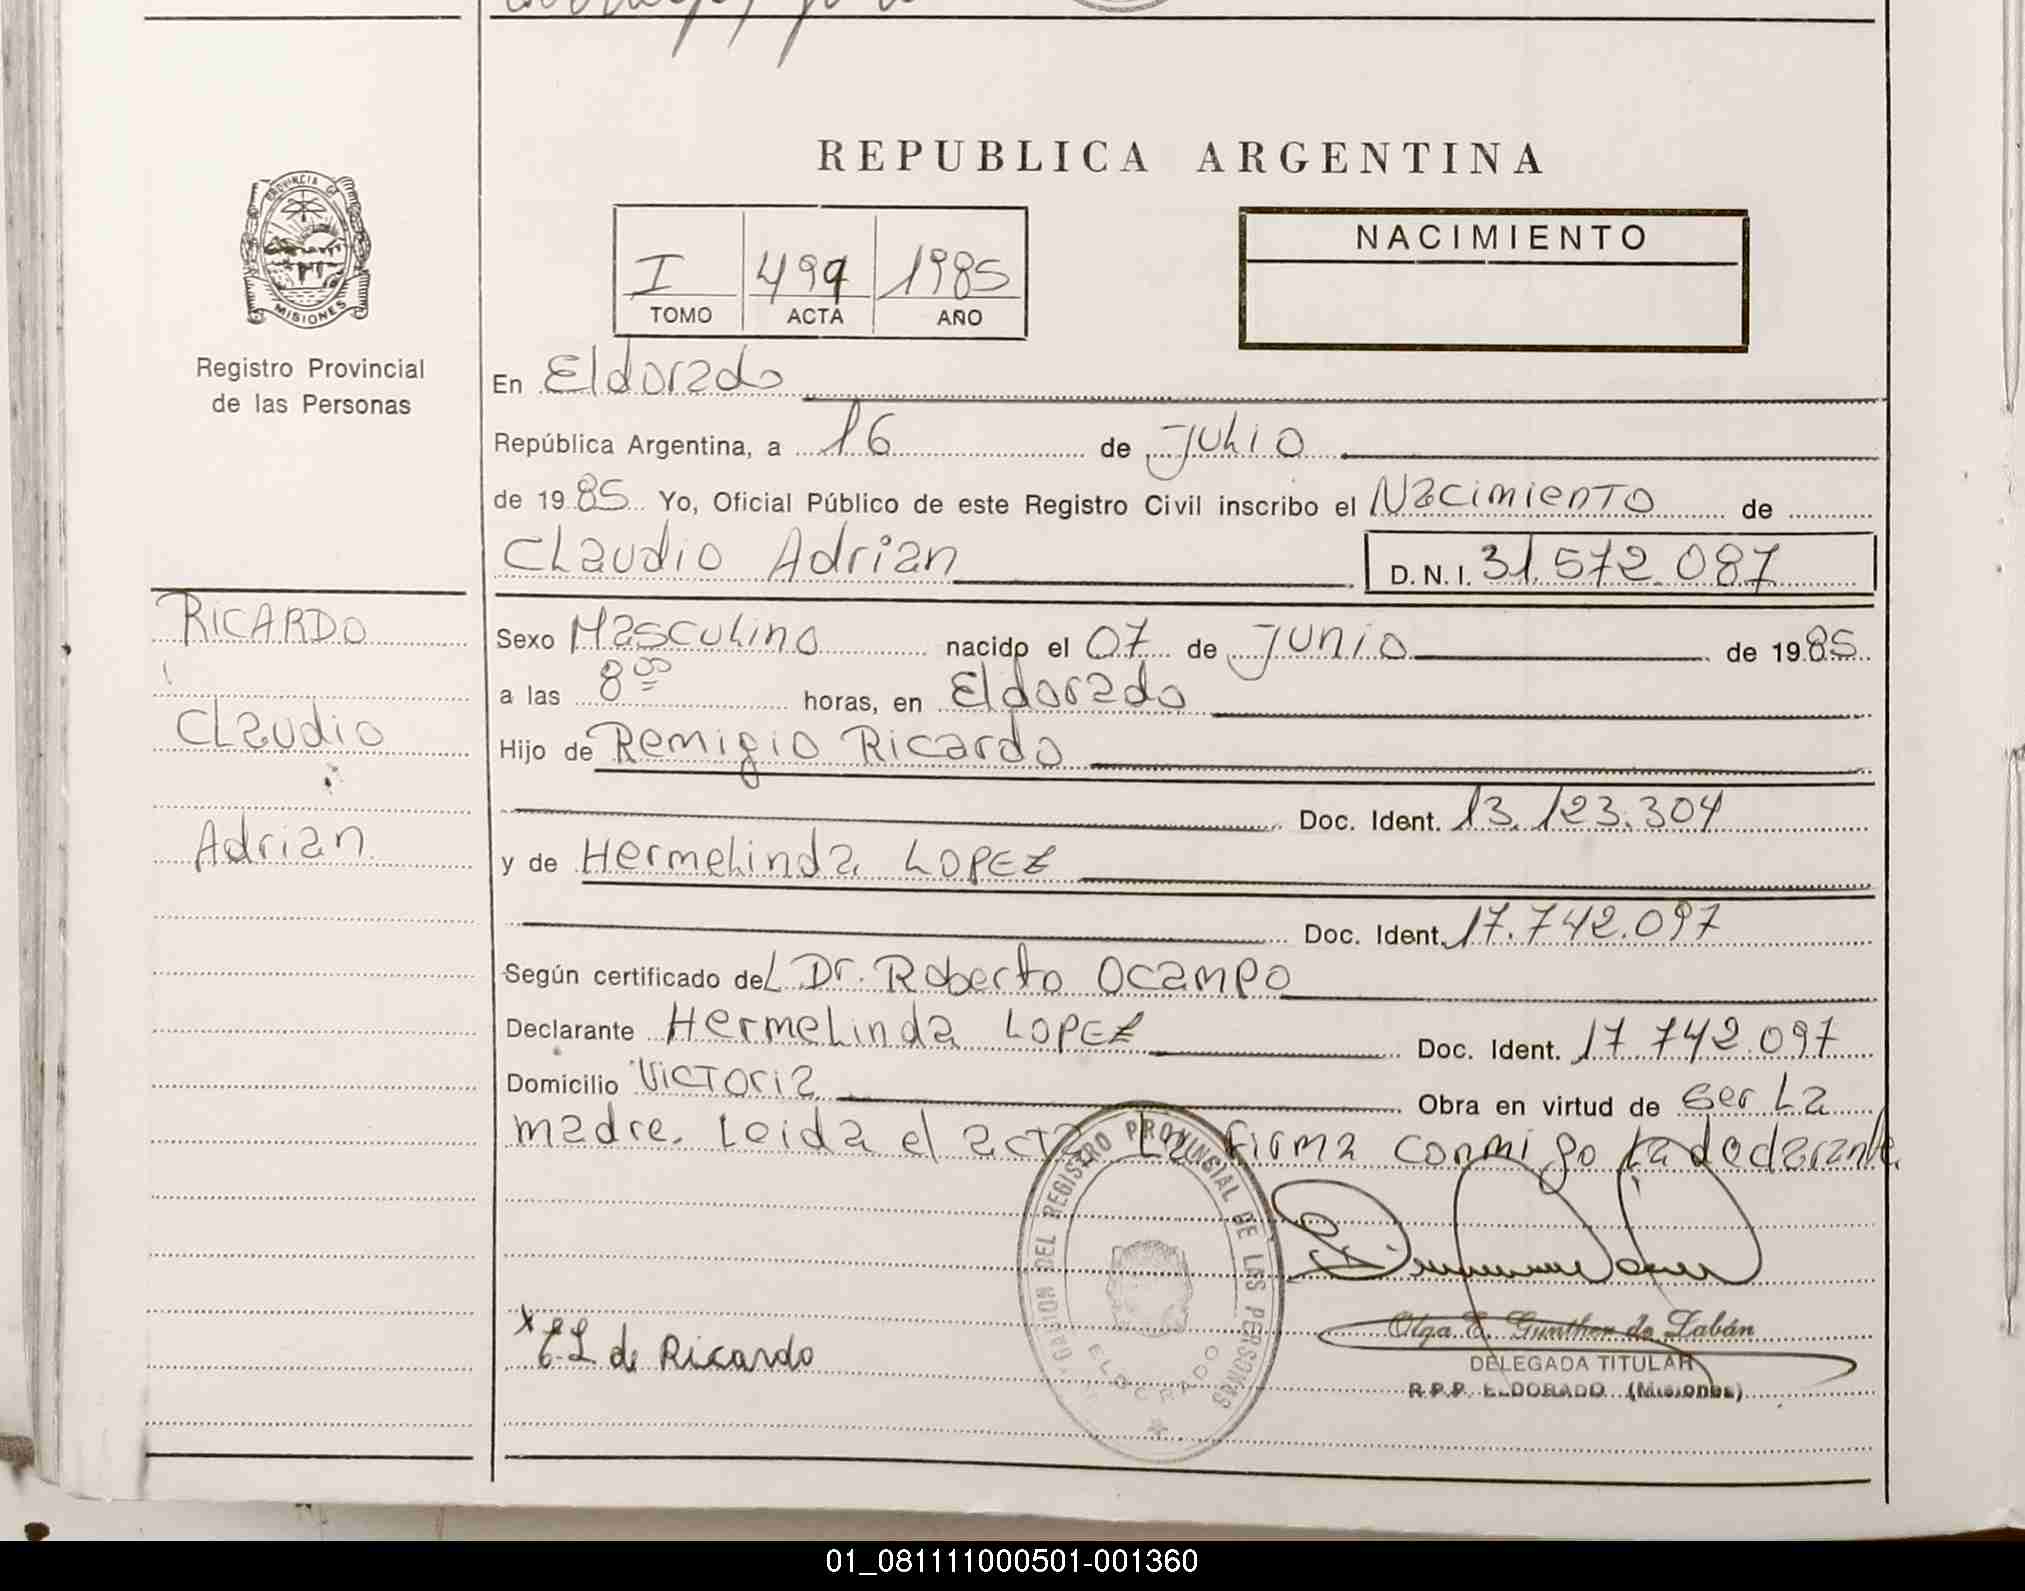 REPUBLICA ARGENTINA
PROVINCIA DE
MISIONES
Registro Provincial
de las Personas
I 499 1985
TOMO ACTA AÑO
NACIMIENTO
En Eldorado
República Argentina, a 16 de Julio
de 1985 Yo, Oficial Público de este Registro Civil inscribo el Nacimiento de
Claudio Adrian D.N.I. 31.572.087
RICARDO
Claudio
Adrian
Sexo Masculino nacido el 07 de Junio de 1985
a las 8 00 horas, en Eldorado
Hijo de Remigio Ricardo
Doc. Ident. 13.123.304
y de Hermelinda LOPEZ
Doc. Ident. 17.742.097
Según certificado del Dr. Roberto Ocampo
Declarante Hermelinda LOPEZ Doc. Ident. 17 742.097
Domicilio Victoria Obra en virtud de ser La
madre. Leida el acta La firma conmigo La declarante
REGISTRO PROVINSIAL DE LAS PERSONAS
ELDORADO
x E L de Ricardo
Olga E. Gunther de Zabán
DELEGADA TITULAR
R.P.P. ELDORADO (Misiones)
01_081111000501-001360